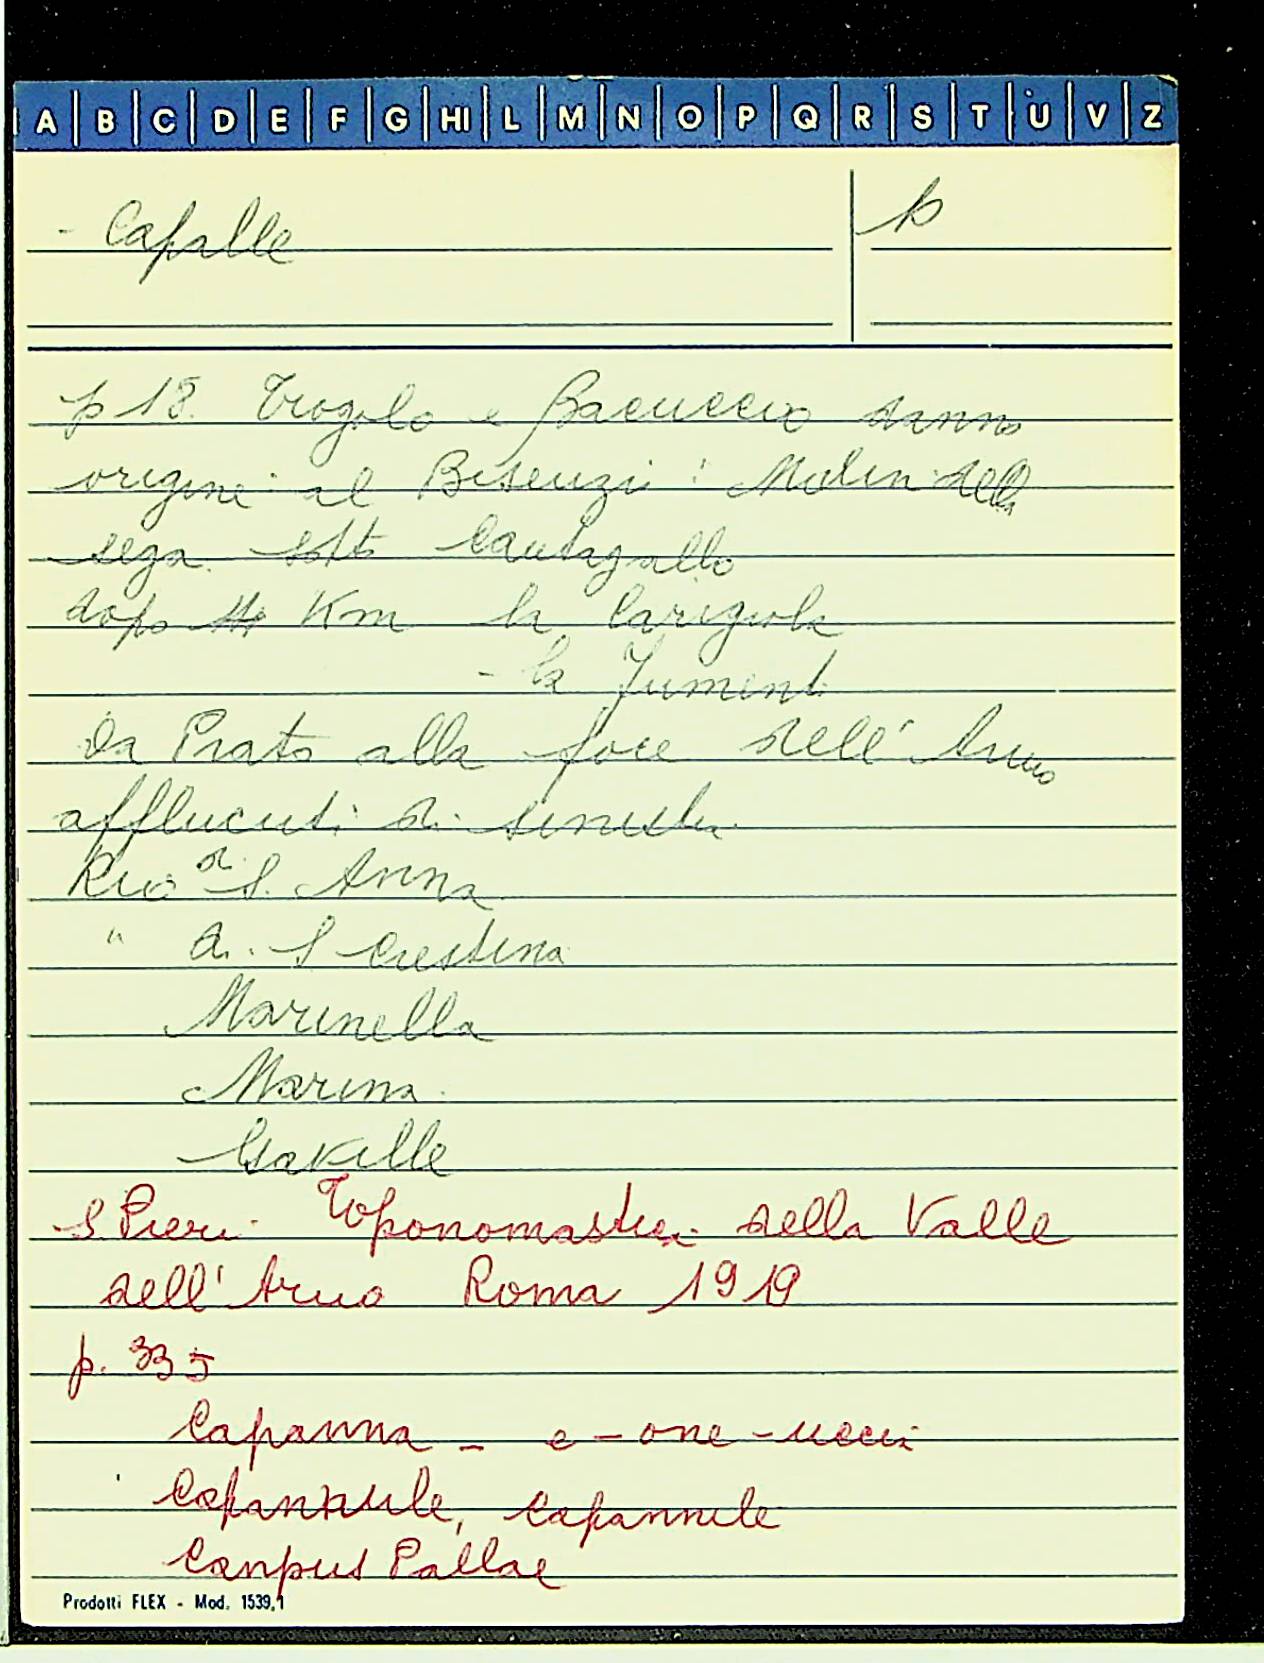 A B C D E F G HI L M N O P Q R S T U V Z
- Capalle
p
p 18. Trogolo e Bacuccio danno
origine al Bisenzio: Molin della
sega sotto Cantagallo
dopo Km la Carigiola
- la
Da Prato alla foce dell'Arno
affluenti di sinistra
Rio di S. Anna
" di S Cristina
Marinella
Marina
Garille
S. Pieri Toponomastica della Valle
dell'Arno Roma 1919
p. 335
Capanna - e - one - ucci
Capannule, Capannile
Campus Pallae
Prodotti FLEX - Mod. 1539,1